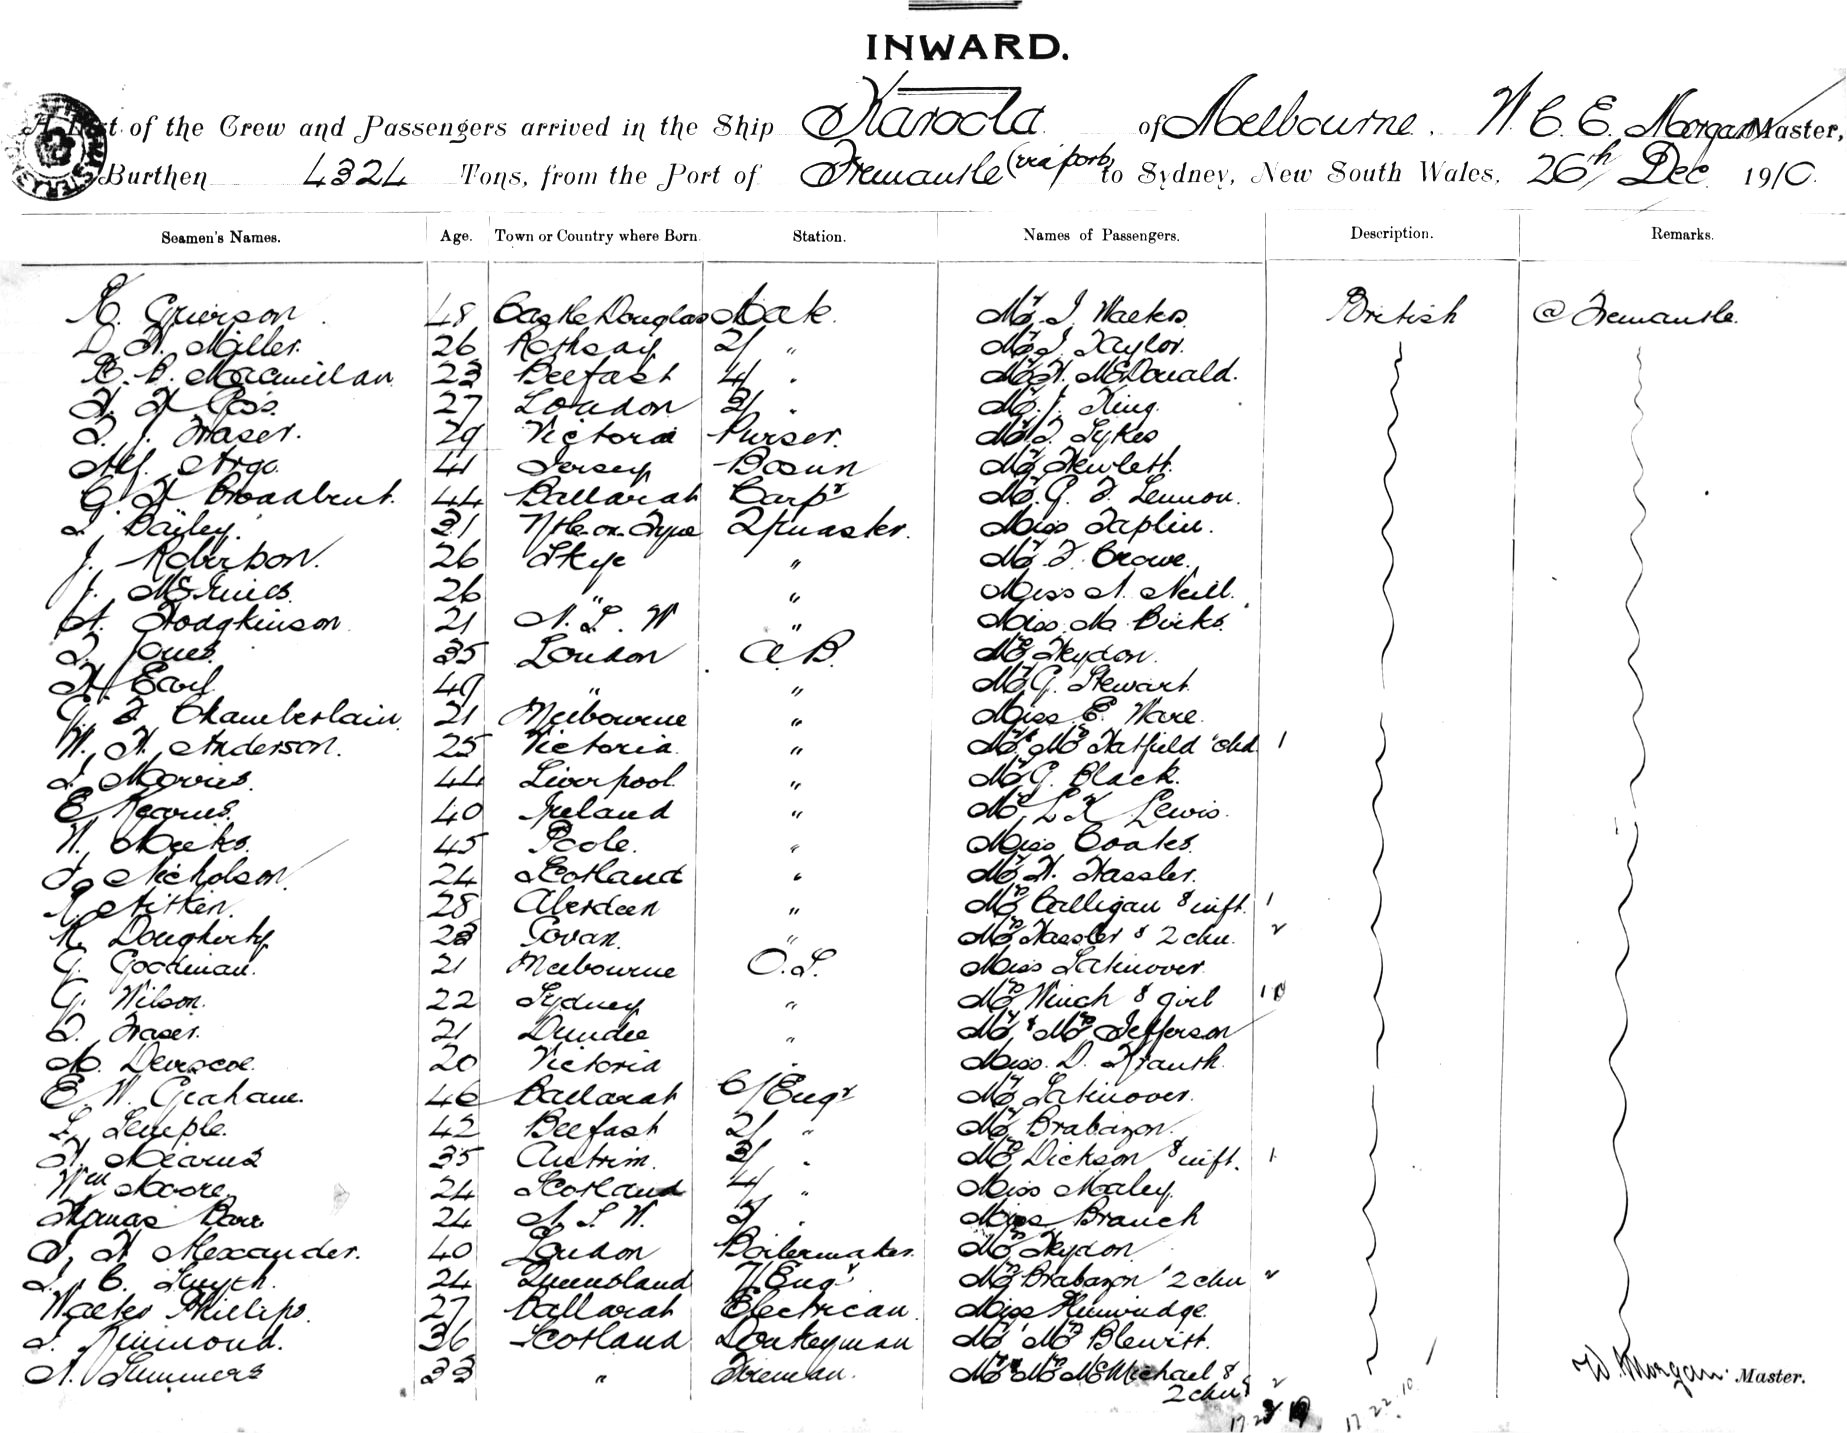 INWARD.
A List of the Crew and Passengers arrived in the Ship Karoola of Melbourne. W C. E. Morgan Master,
Burthen 4324 Tons, from the Port of Fremantle (via ports) to Sydney, New South Wales, 26th Dec 1910.
Seamen's Names. Age. Town or Country where Born. Station. Names of Passengers. Description. Remarks.
Grierson 48 Castle Douglas Mate. Mr. J. British @ Fremantle.
Miller. 26 Rothsay 2/ " Mr J. Taylor.
Macmillan 23 Belfast 4/ " Mr H. McDonald.
27 London 3/ " Mr. J. King.
Fraser. 29 Victoria Purser. Mr Sykes
Alf. Argo. 41 Jersey Bosun Mr Hewlett.
G. H Broadbent. 44 Ballarat Carpr Mr. G. F. Lennon.
Bayley. 31 N'tle-on-Tyne Qrmaster. Miss Taplin.
J. Robertson. 26 Skye " Mr F. Crowe.
J. McInnes. 26 " " Miss A. Neill.
A. Hodgkinson 21 N. S. W " Miss M. Birks.
Jones. 35 London A.B. Mr Heydon.
H. Earl 49 " " Mr G. Stewart.
G. F. Chamberlain 21 Melbourne " Miss E. Ware.
W. H. Anderson. 25 Victoria. " Mr & Mrs Hatfield & chd 1
Morris. 44 Liverpool. " Mr G. Black.
E. Kearns. 40 Ireland " Mr L K Lewis.
W. Meeks. 45 Poole. " Miss Coates.
Nicholson. 24 Scotland " Mr H. Hassler.
Aitken. 28 Aberdeen " Mrs Calligan & inft. 1
Dougherty 23 Govan. " Mrs Hassler & 2 chn. 2
G. Goodman. 21 Melbourne O.S. Miss Latinover
G. Wilson. 22 Sydney " Mrs Winch & girl 1
Fraser. 21 Dundee " Mr & Mrs Jefferson
M. 20 Victoria " Miss. D. Krauth.
E. W. Grahame. 46 Ballarat C/Engr Mr Latinover.
Temple. 42 Belfast 2/ " Mr Brabazon.
Mearns 35 Antrim. 3/ " Mrs Dickson & inft. 1
Wm Moore. 24 Scotland 4/ " Miss Maley.
Thomas Barr 24 N. S. W. 5/ " Miss Branch
H. Alexander. 40 London Boilermaker. Mrs Heydon
C. Smyth. 24 Queensland 7/Engr Mrs Brabazon & 2 chn 2
Walter Phillips. 27 Ballarat Electrican. Miss
36 Scotland Donkeyman Mr & Mrs Blewitt.
Summers 33 " Fireman. Mr & Mrs McMichael &
2 chn 2
W. Morgan. Master.
17 22 10